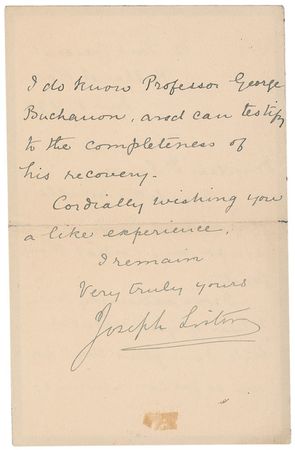 I do know Professor George
Buchanan, and can testify
to the completeness of
his recovery.
Cordially wishing you
a like experience,
I remain
Very truly yours
Joseph Lister